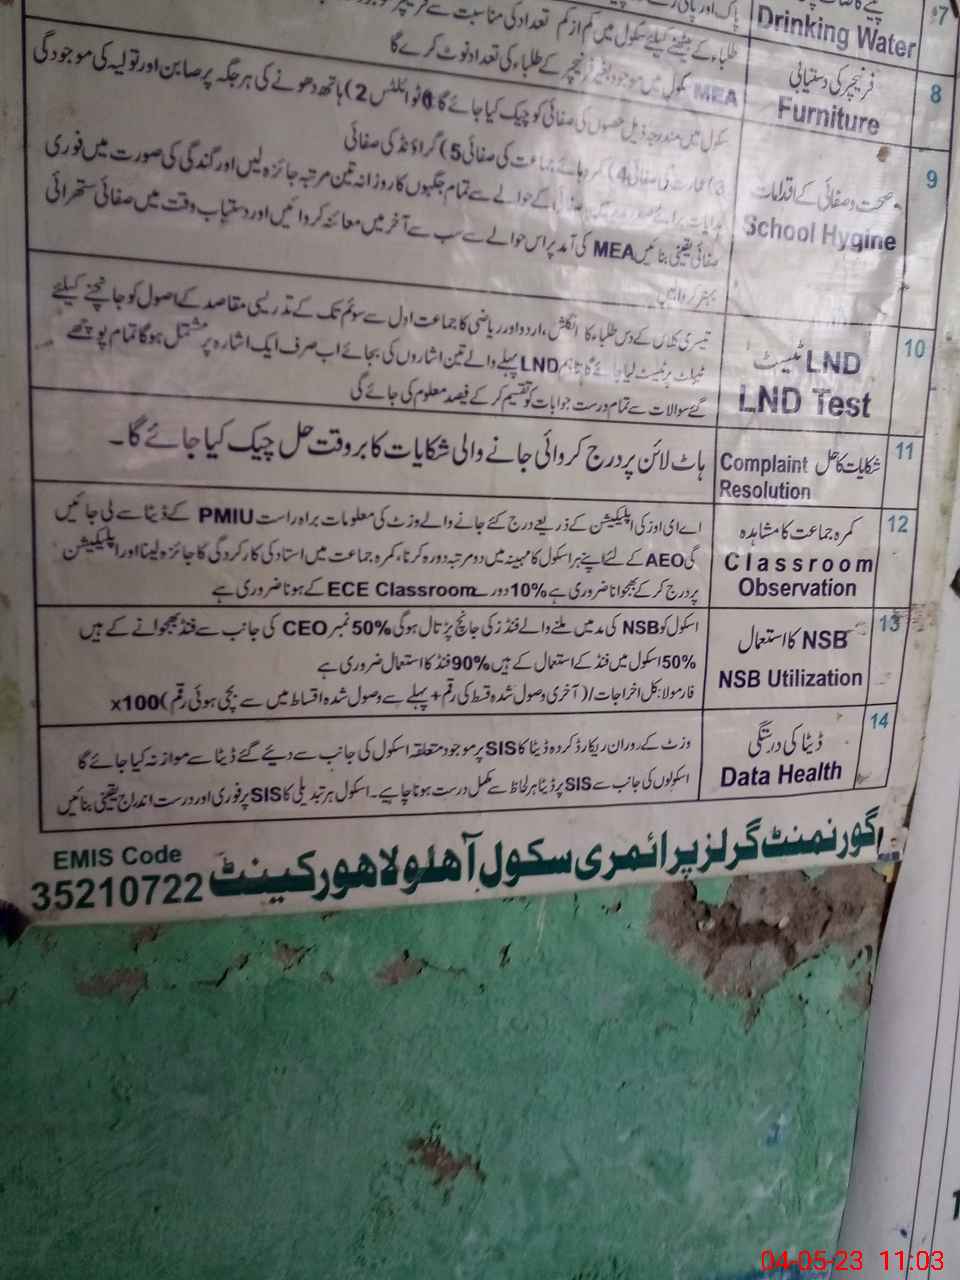 7
Drinking Water
8
فرنیچر کی دستیابی
Furniture
طلباء کے بیٹھنے کیلئے سکول میں کم از کم تعداد کی مناسبت سے
MEA سکول میں موجود فرنیچر کے طلباء کی تعداد نوٹ کرے گا
9
صحت و صفائی کے اقدامات
School Hygine
سکول میں مندرجہ ذیل حصوں کی صفائی کو چیک کیا جائے گا۔ ٹوائلٹس 2) ہاتھ دھونے کی ہر جگہ پر صابن اور تولیہ کی موجودگی
3) عمارت کی صفائی 4) کمرہ جماعت کی صفائی 5) گراؤنڈ کی صفائی
کے حوالے سے تمام جگہوں کا روزانہ تین مرتبہ جائزہ لیں اور گندگی کی صورت میں فوری
صفائی یقینی بنائیں MEA کی آمد پر اس حوالے سے سب سے آخر میں معائنہ کروائیں اور دستیاب وقت میں صفائی ستھرائی
10
LND ٹیسٹ
LND Test
تیسری کلاس کے دس طلباء کا انگلش، اردو اور ریاضی کا جماعت اول سے سوئم تک کے تدریسی مقاصد کے اصول کو جانچنے کیلئے
ٹیبلٹ پر ٹیسٹ لیا جائے گا تاہم LND پہلے والے تین اشاروں کی بجائے اب صرف ایک اشارہ پر مشتمل ہوگا تمام پوچھے
گئے سوالات سے تمام درست جوابات کو تقسیم کر کے فیصد معلوم کی جائے گی
11
شکایات کا حل Complaint
Resolution
ہاٹ لائن پر درج کروائی جانے والی شکایات کا بروقت حل چیک کیا جائے گا۔
12
کمرہ جماعت کا مشاہدہ
Classroom
Observation
اے ای اوز کی اپلیکیشن کے ذریعے درج کئے جانے والے وزٹ کی معلومات براہ راست PMIU کے ڈیٹا سے لی جائیں
گی AEO کے لئے اپنے ہر اسکول کا مہینہ میں دو مرتبہ دورہ کرنا، کمرہ جماعت میں استاد کی کارکردگی کا جائزہ لینا اور اپلیکیشن
پر درج کر کے بھجوانا ضروری ہے 10% دورے ECE Classroom کے ہونا ضروری ہے
13
NSB کا استعمال
NSB Utilization
اسکول کو NSB کی مد میں ملنے والے فنڈز کی جانچ پڑتال ہوگی 50% نمبر CEO کی جانب سے فنڈ بھجوانے کے ہیں
50% اسکول میں فنڈ کے استعمال کے ہیں 90% فنڈ کا استعمال ضروری ہے
فارمولا: کل اخراجات/(آخری وصول شدہ قسط کی رقم + پہلے سے وصول شدہ اقساط میں سے بچی ہوئی رقم) x100
14
ڈیٹا کی درستگی
Data Health
وزٹ کے دوران ریکارڈ کردہ ڈیٹا کا SIS پر موجود متعلقہ اسکول کی جانب سے دیئے گئے ڈیٹا سے موازنہ کیا جائے گا
اسکولوں کی جانب سے SIS پر ڈیٹا ہر لحاظ سے مکمل درست ہونا چاہیے۔ اسکول ہر تبدیلی کا SIS پر فوری اور درست اندراج یقینی بنائیں
گورنمنٹ گرلز پرائمری سکول آھلو لاھور کینٹ
EMIS Code
35210722
04-05-23 11:03